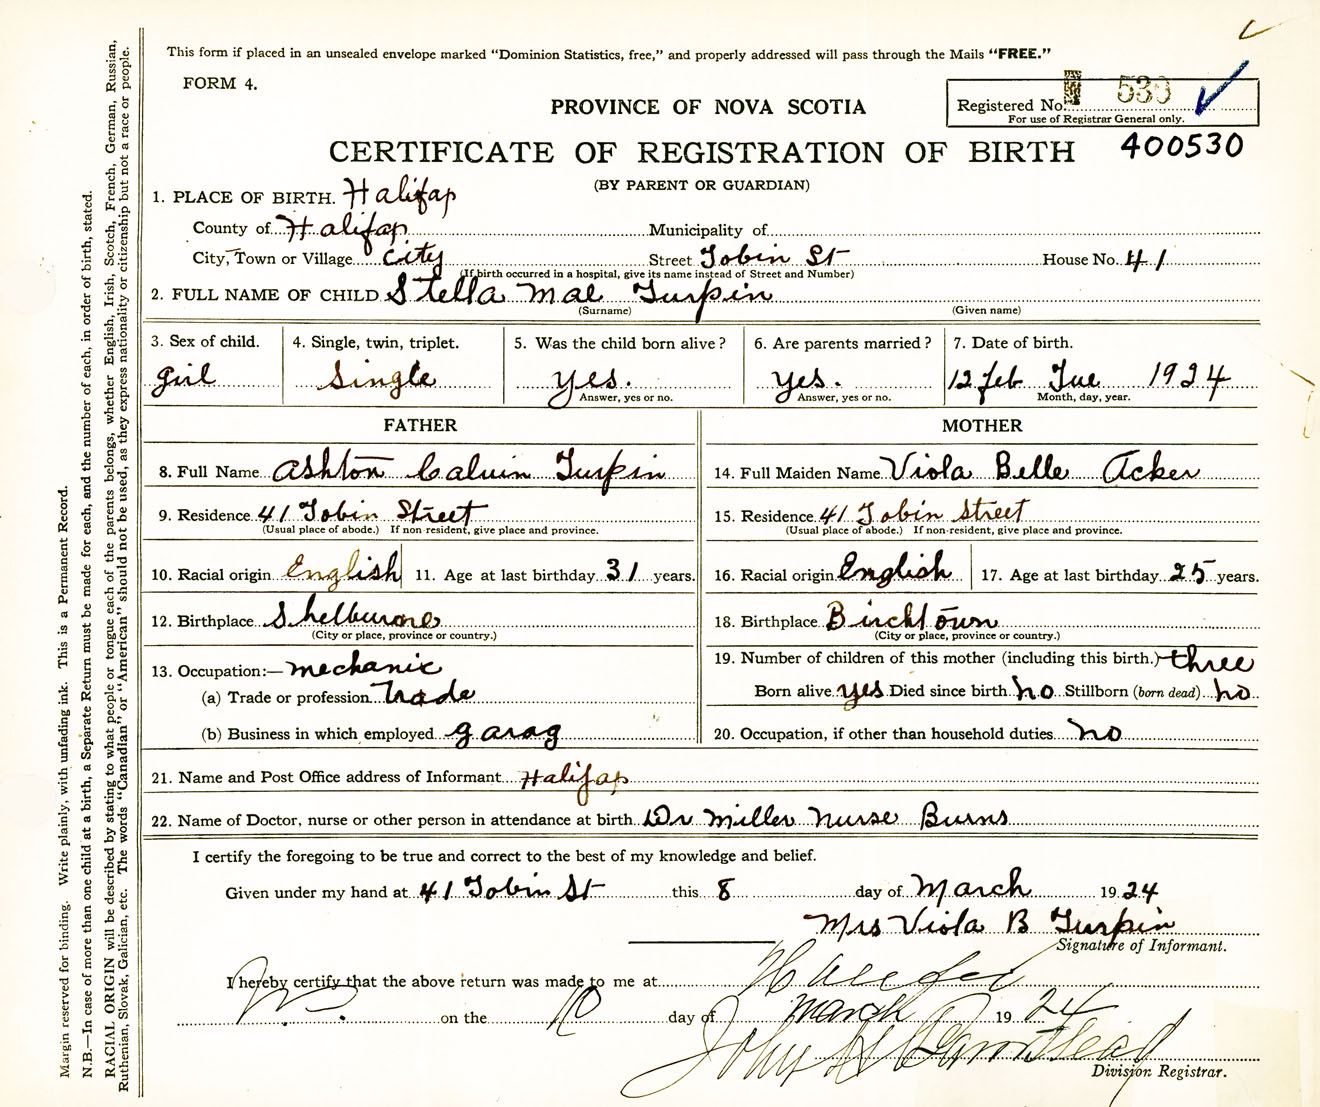 This form if placed in an unsealed envelope marked “Dominion Statistics, free,” and properly addressed will pass through the Mails “FREE.”
FORM 4.
PROVINCE OF NOVA SCOTIA
Registered No. 530
For use of Registrar General only.
CERTIFICATE OF REGISTRATION OF BIRTH 400530
(BY PARENT OR GUARDIAN)
1. PLACE OF BIRTH. Halifax
County of Halifax Municipality of
City, Town or Village City Street Tobin St House No. 41
(If birth occurred in a hospital, give its name instead of Street and Number)
2. FULL NAME OF CHILD Stella Mae Turpin
(Surname) (Given name)
3. Sex of child. 4. Single, twin, triplet. 5. Was the child born alive? 6. Are parents married? 7. Date of birth.
girl Single yes. yes. 12 Feb Tue 1924
Answer, yes or no. Answer, yes or no. Month, day, year.
FATHER MOTHER
8. Full Name Ashton Calvin Turpin 14. Full Maiden Name Viola Belle Acker
9. Residence 41 Tobin Street 15. Residence 41 Tobin Street
(Usual place of abode.) If non-resident, give place and province. (Usual place of abode.) If non-resident, give place and province.
10. Racial origin English 11. Age at last birthday 31 years. 16. Racial origin English 17. Age at last birthday 25 years.
12. Birthplace Shelburne 18. Birthplace Birchtown
(City or place, province or country.) (City or place, province or country.)
13. Occupation:— mechanic 19. Number of children of this mother (including this birth.) three
(a) Trade or profession Trade Born alive yes Died since birth no Stillborn (born dead) no
(b) Business in which employed garag 20. Occupation, if other than household duties no
21. Name and Post Office address of Informant Halifax
22. Name of Doctor, nurse or other person in attendance at birth Dr Miller Nurse Burns
I certify the foregoing to be true and correct to the best of my knowledge and belief.
Given under my hand at 41 Tobin St this 8 day of March 1924
Mrs Viola B Turpin
Signature of Informant.
I hereby certify that the above return was made to me at Halifax
on the 10 day of March 1924
John
Division Registrar.
Margin reserved for binding. Write plainly, with unfading ink. This is a Permanent Record.
N.B.—In case of more than one child at a birth, a Separate Return must be made for each, and the number of each, in order of birth, stated.
RACIAL ORIGIN will be described by stating to what people or tongue each of the parents belongs, whether English, Irish, Scotch, French, German, Russian,
Ruthenian, Slovak, Galician, etc. The words “Canadian” or “American” should not be used, as they express nationality or citizenship but not a race or people.